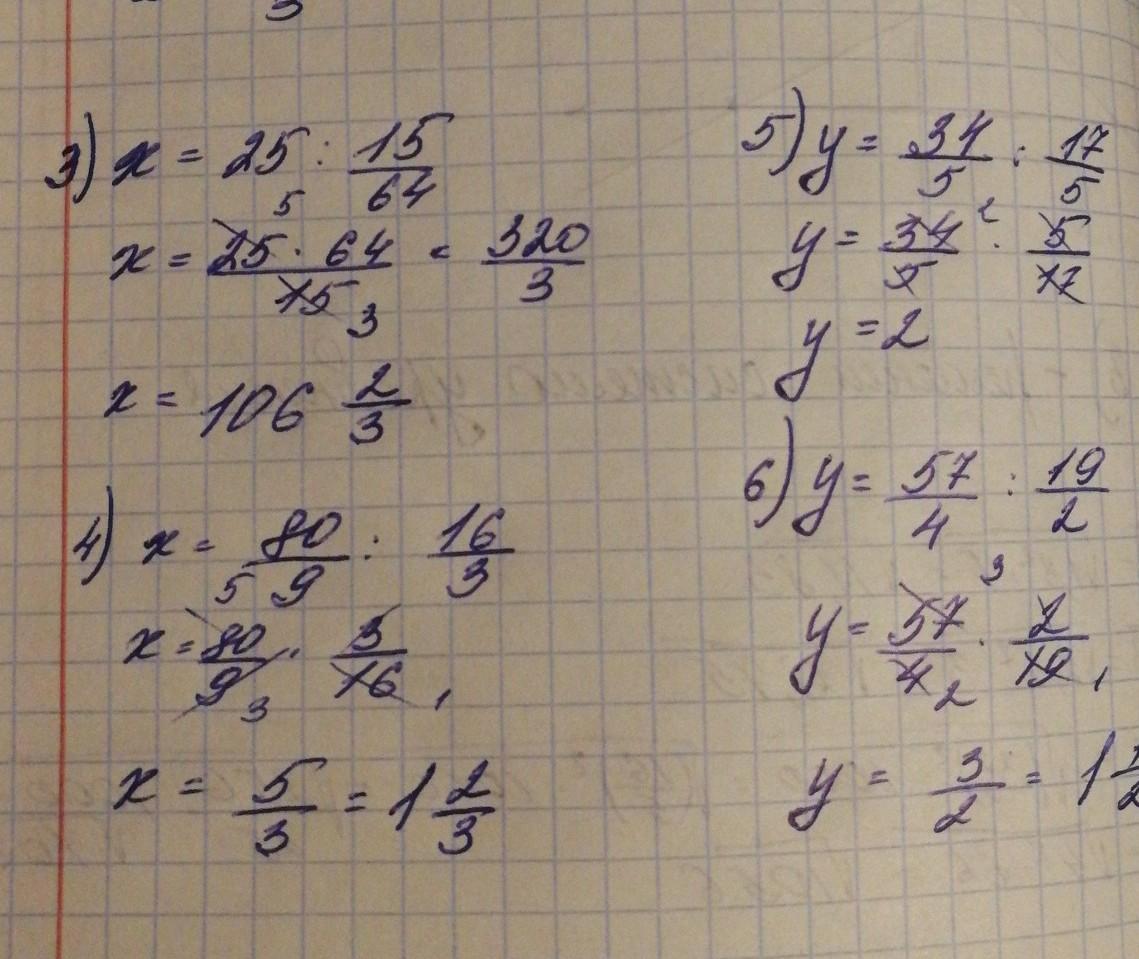 3
3) x = 25 : 15/64
x = 25 · 64 / 15 = 320/3
5
3
x = 106 2/3
4) x = 80/9 : 16/3
x = 80/9 · 3/16
5
3 1
x = 5/3 = 1 2/3
5) y = 34/5 : 17/5
y = 34/5 · 5/17
2
y = 2
6) y = 57/4 : 19/2
y = 57/4 · 2/19
3
2 1
y = 3/2 = 1 1/2